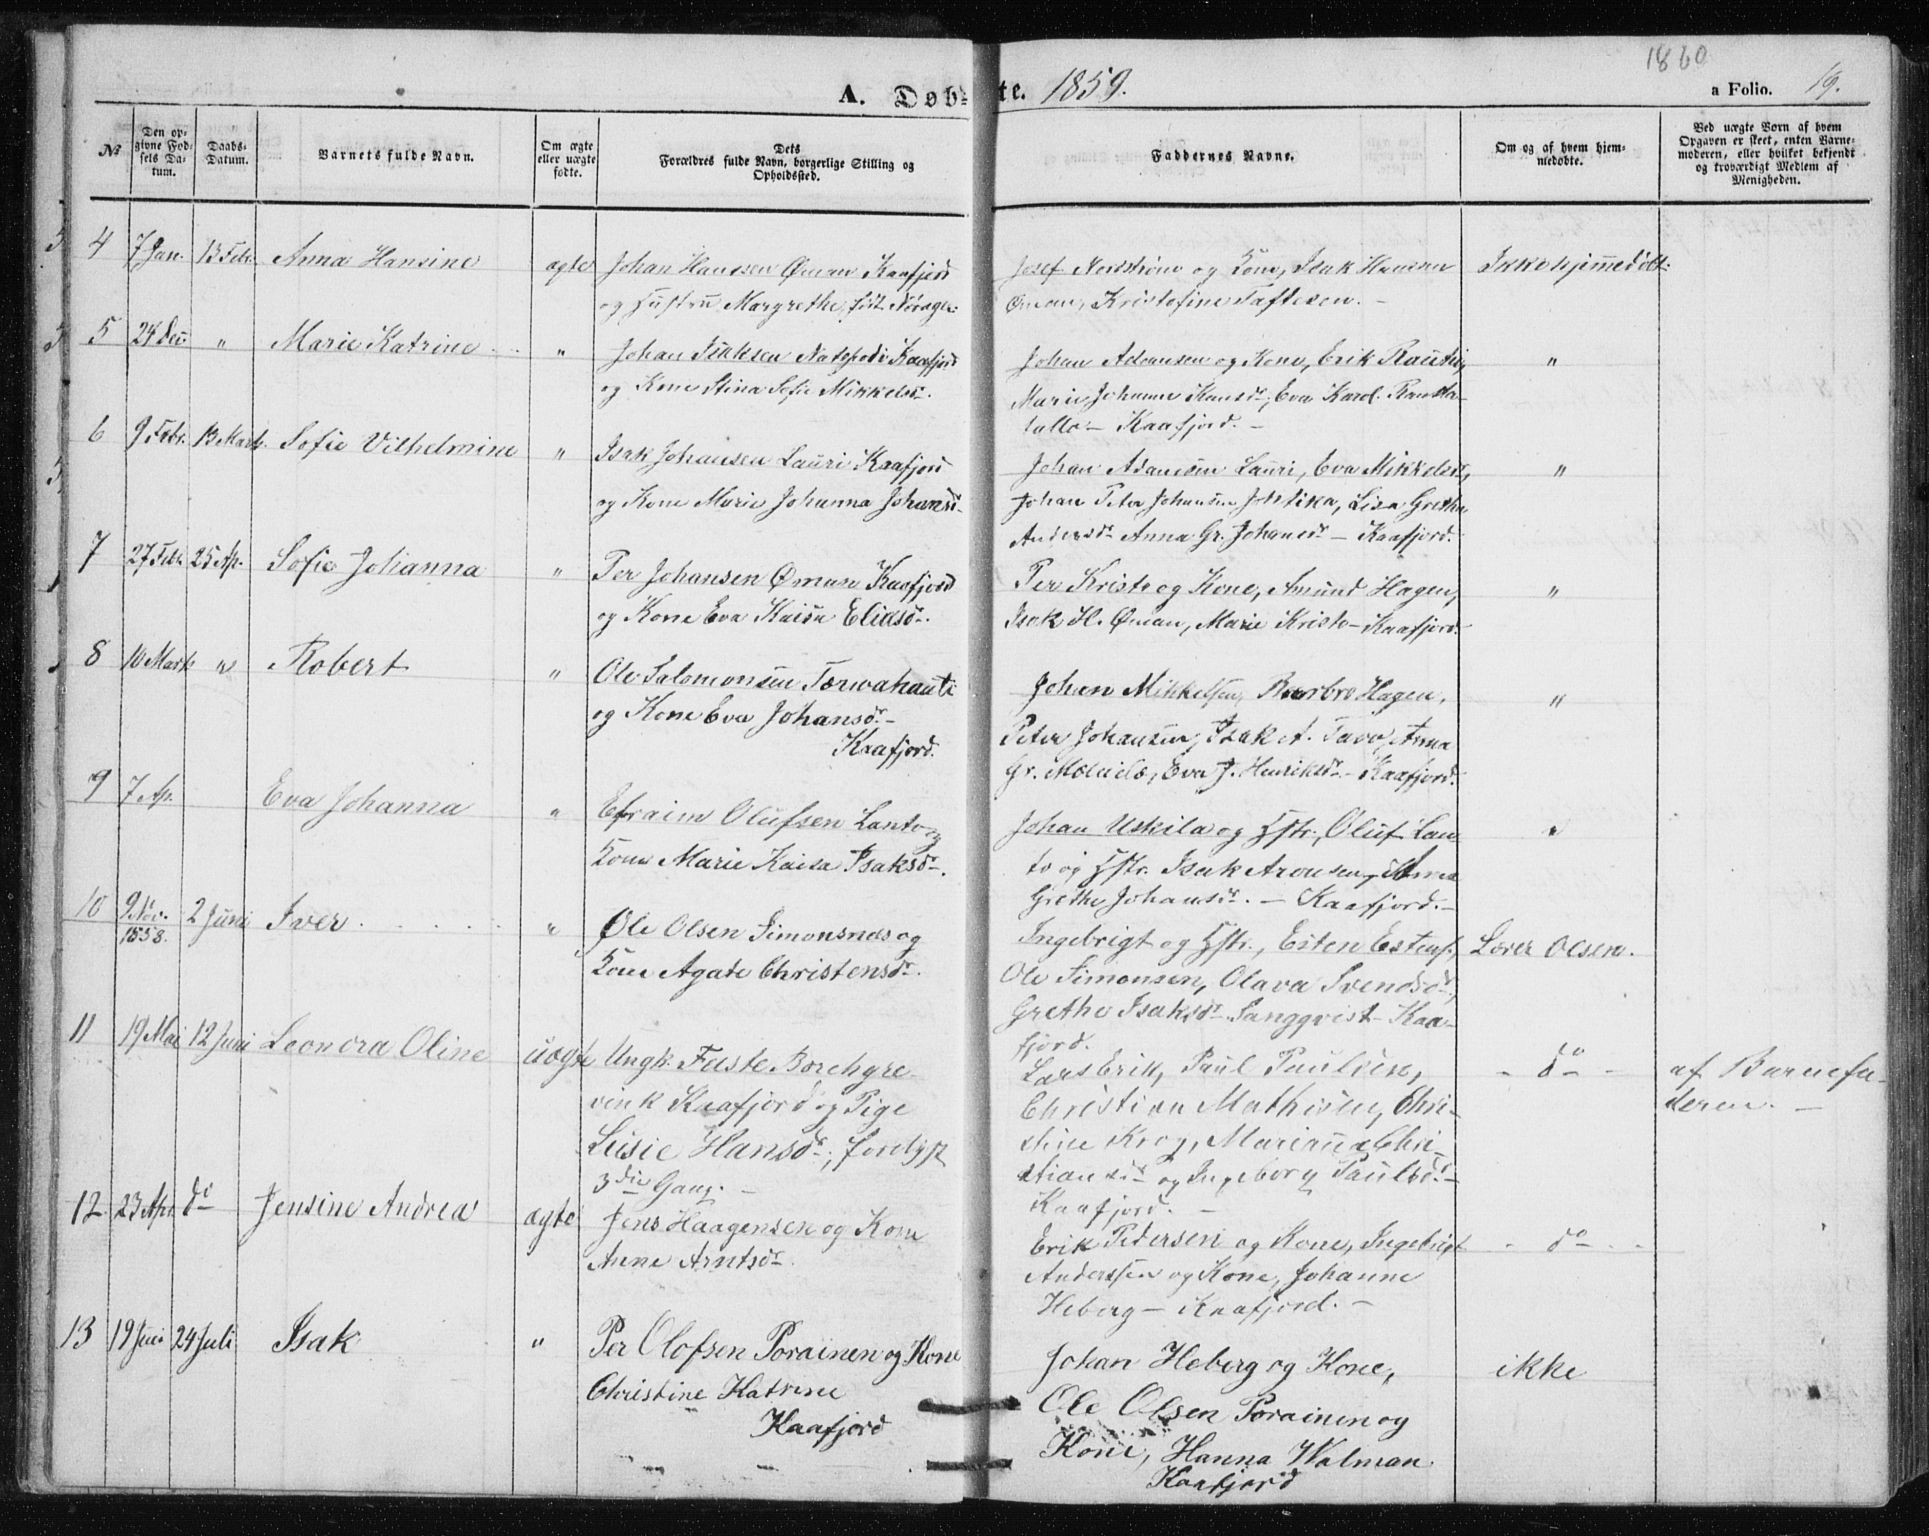 1860
A. Døbte. 1859. a Folio. 19.
№
Den opgivne Fødsels Datum.
Daabs-Datum.
Barnets fulde Navn.
Om ægte eller uægte fødte.
Dets Forældres fulde Navn, borgerlige Stilling og Opholdssted.
Faddernes Navne.
Om og af hvem hjemmedøbte.
Ved uægte Børn af hvem Opgaven er skeet, enten Barnemoderen, eller hvilket bekjendt og troværdigt Medlem af Menigheden.
4 7 Jan. 13 Febr. Anna Hansine ægte Johan Hanssen Øman Kaafjord
og Hustru Margrethe, født
Josef Nordstrøm og Kone, Isak Hansen
Øman, Kristofine Taftesen. –
Ikke hjemmedøbt
5 24 Dec " Marie Katrine " Johan Isaksen Kaafjord
og Kone Stina Sofie Mikkelsdr.
Johan Adamsen og Kone, Erik Rautio,
Marie Johanne Hansdr, Eva Karol.
– Kaafjord. –
"
6 9 Febr. 13 Marts. Sofie Vilhelmine " Isak Johansen Lauri Kaafjord
og Kone Marie Johanna Johansdr.
Johan Adamsen Lauri, Eva Mikkelsdr,
Johan Peter Johansen, Lisa Grethe
Andersdr Anna Gr. Johansdr – Kaafjord.
"
7 27 Febr. 25 Ap. Sofie Johanna " Per Johansen Øman Kaafjord
og Kone Eva Kaisa Eliasdr.
Per Kristo og Kone, Amund Hagen,
Isak H. Øman, Marie Kristo – Kaafjord.
"
8 10 Marts " Robert " Ole Salomonsen Tærwahauti
og Kone Eva Johansdr. –
Kaafjord.
Johan Mikkelsen, Barbro Hagen,
Peter Johansen, Isak A. Tavo, Anna
Gr. , Eva J. Henriksdr. – Kaafjord.
"
9 7 Ap. Eva Johanna " Efraim Olufsen Lanto og
Kone Marie Kaisa Isaksdr.
Johan Uskila og Hstr., Oluf Lan
to og Hstr. Isak Aronsen, Anna
Grethe Johansdr. – Kaafjord. –
"
10 9 Nov. 1858. 2 Juni Iver " Ole Olsen Simonsnes og
Kone Agate Christensdr.
Ingebrigt og Hstr., Esten Estens.
Ole Simonsen, Olava Svendsdr,
Grethe Isaksdr. Sangqvist – Kaa-
fjord.
Lærer Olsen.
11 19 Mai 12 Juni Leonora Oline uægte Ungk. Feste Borchgre
vink Kaafjord og Pige
Lusie Hansdr., forelyst
3die Gang. –
Lars Erik, Paul Paulsen,
Christian Mathisen, Chri-
stine Krog, Mariane Chri-
stiansdr og Ingeborg Paulsdr. –
Kaafjord. –
– do –
af Barnefa-
deren. –
12 23 Apr. do Jensine Andrea ægte Jens Haagensen og Kone
Anne Arntsdr.
Erik Pedersen og Kone, Ingebrigt
Anderssen og Kone, Johanne
Heberg – Kaafjord. –
– do –
13 19 Juni 24 Juli Isak " Per Olofsen Porainen og Kone
Christine Katrine
Kaafjord
Johan Heberg og Kone,
Ole Olsen Porainen og
Kone, Hanna Walman.
Kaafjord
ikke